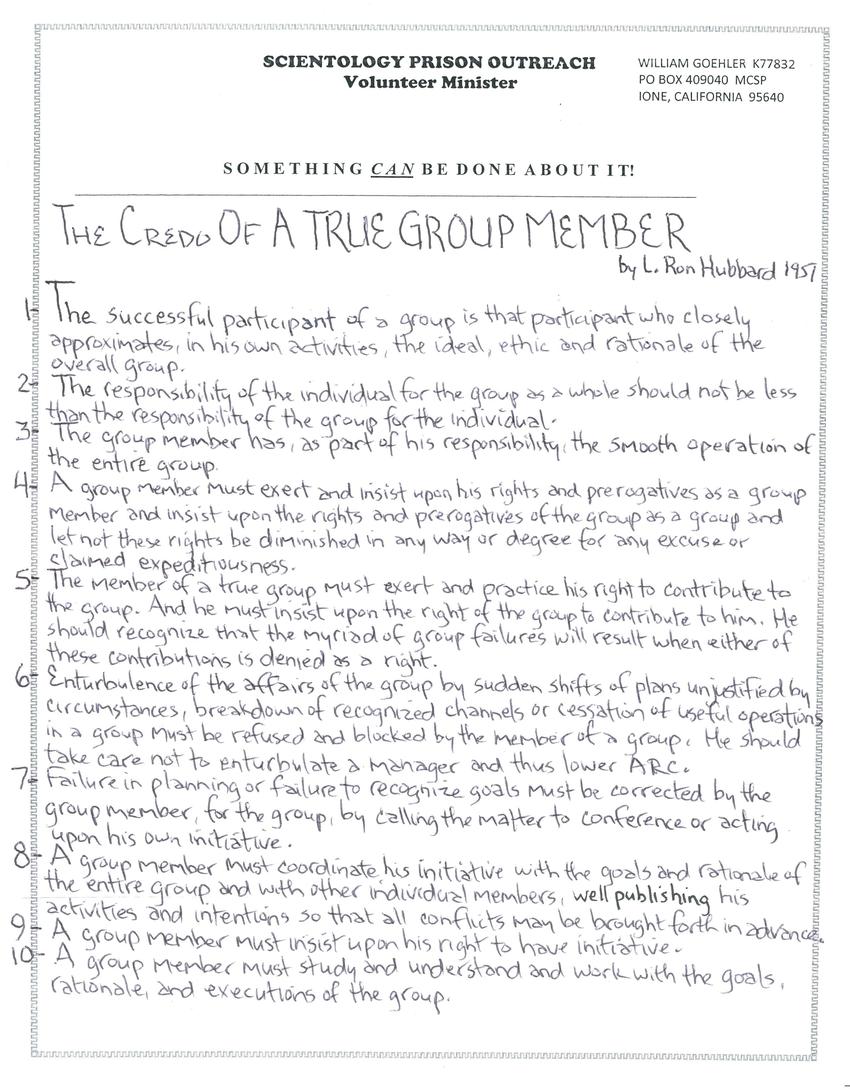 SCIENTOLOGY PRISON OUTREACH
Volunteer Minister
WILLIAM GOEHLER K77832
PO BOX 409040 MCSP
IONE, CALIFORNIA 95640
SOMETHING CAN BE DONE ABOUT IT!
THE CREDO OF A TRUE GROUP MEMBER
by L. Ron Hubbard 1951
1- The successful participant of a group is that participant who closely
approximates, in his own activities, the ideal, ethic and rationale of the
overall group.
2- The responsibility of the individual for the group as a whole should not be less
than the responsibility of the group for the individual.
3- The group member has, as part of his responsibility, the smooth operation of
the entire group.
4- A group member must exert and insist upon his rights and prerogatives as a group
member and insist upon the rights and prerogatives of the group as a group and
let not these rights be diminished in any way or degree for any excuse or
claimed expeditiousness.
5- The member of a true group must exert and practice his right to contribute to
the group. And he must insist upon the right of the group to contribute to him. He
should recognize that the myriad of group failures will result when either of
these contributions is denied as a right.
6- Enturbulence of the affairs of the group by sudden shifts of plans unjustified by
circumstances, breakdown of recognized channels or cessation of useful operations
in a group must be refused and blocked by the member of a group. He should
take care not to enturbulate a manager and thus lower ARC.
7- Failure in planning or failure to recognize goals must be corrected by the
group member, for the group, by calling the matter to conference or acting
upon his own initiative.
8- A group member must coordinate his initiative with the goals and rationale of
the entire group and with other individual members, well publishing his
activities and intentions so that all conflicts may be brought forth in advance.
9- A group member must insist upon his right to have initiative.
10- A group member must study and understand and work with the goals,
rationale, and executions of the group.